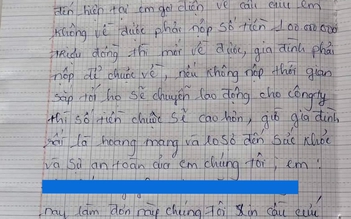 đến hiện tại em gọi điện về cầu cứu em
không về được phải nộp số tiền 100.000.000
triệu đồng th mới về được, gia đình phải
nộp để chuộc về, nếu không nộp thời gian
sắp tới họ sẽ chuyển lao động cho công ty
thì số tiền chuộc sẽ cao hơn, giờ gia đình
tôi là hoang mang và lo sợ đến sức khỏe
và sự an toàn của em chúng tôi, em
nay làm đơn này chúng tôi xin cầu cứu